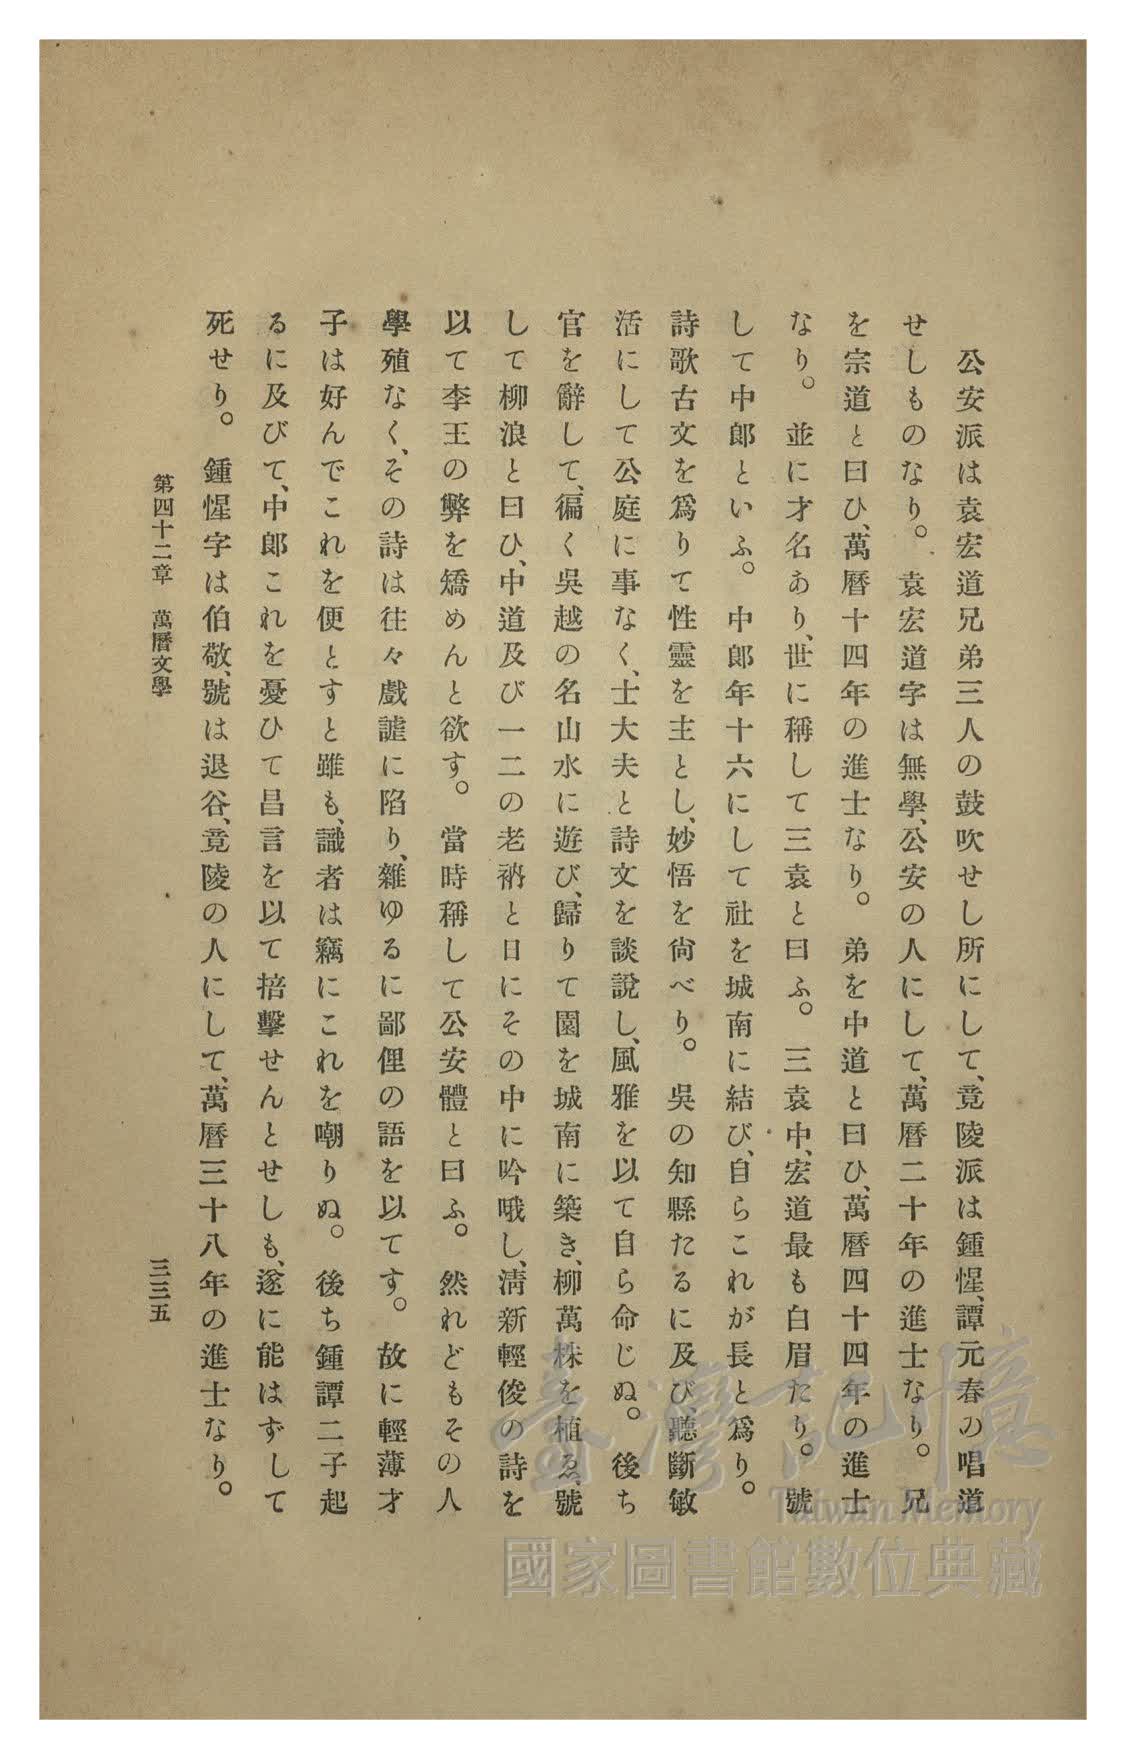 公安派は袁宏道兄弟三人の鼓吹せし所にして、竟陵派は鍾惺、譚元春の唱道
せしものなり。袁宏道字は無學、公安の人にして、萬曆二十年の進士なり。兄
を宗道と曰ひ、萬曆十四年の進士なり。弟を中道と曰ひ、萬曆四十四年の進士
なり。並に才名あり、世に稱して三袁と曰ふ。三袁中、宏道最も白眉たり。號
して中郎といふ。中郎年十六にして社を城南に結び、自らこれが長と爲り。
詩歌古文を爲りて性靈を主とし、妙悟を尙べり。吳の知縣たるに及び、聽斷敏
活にして公庭に事なく、士大夫と詩文を談說し、風雅を以て自ら命じぬ。後ち
官を辭して、徧く吳越の名山水に遊び、歸りて園を城南に築き、柳萬株を植ゑ、號
して柳浪と曰ひ、中道及び一二の老衲と日にその中に吟哦し、淸新輕俊の詩を
以て李王の弊を矯めんと欲す。當時稱して公安體と曰ふ。然れどもその人
學殖なく、その詩は往々戲謔に陷り、雜ゆるに鄙俚の語を以てす。故に輕薄才
子は好んでこれを便とすと雖も、識者は竊にこれを嘲りぬ。後ち鍾譚二子起
るに及びて、中郎これを憂ひて昌言を以て掊擊せんとせしも、遂に能はずして
死せり。鍾惺字は伯敬、號は退谷、竟陵の人にして、萬曆三十八年の進士なり。
第四十二章 萬曆文學
三三五
臺灣記憶
Taiwan Memory
國家圖書館數位典藏